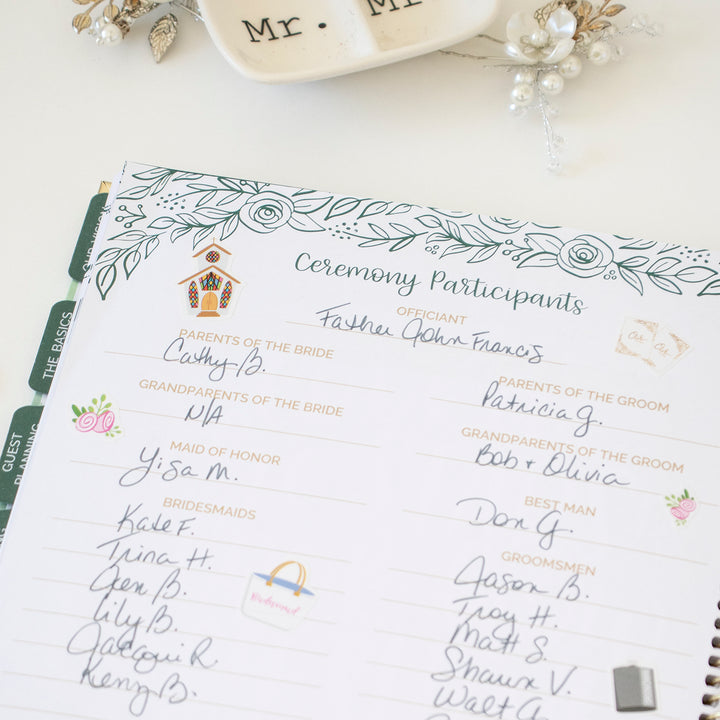 Mr.
Mr
Ceremony Participants
OFFICIANT
Father John Francis
PARENTS OF THE BRIDE
Cathy B.
GRANDPARENTS OF THE BRIDE
N/A
MAID OF HONOR
Yisa M.
BRIDESMAIDS
Kate F.
Trina H.
Jen B.
Lily B.
Jacqui R.
Kenz B.
PARENTS OF THE GROOM
Patricia G.
GRANDPARENTS OF THE GROOM
Bob + Olivia
BEST MAN
Don G.
GROOMSMEN
Jason B.
Troy H.
Matt S.
Shaun V.
Walt
THE BASICS
GUEST
PLANNING
Bridesmaid